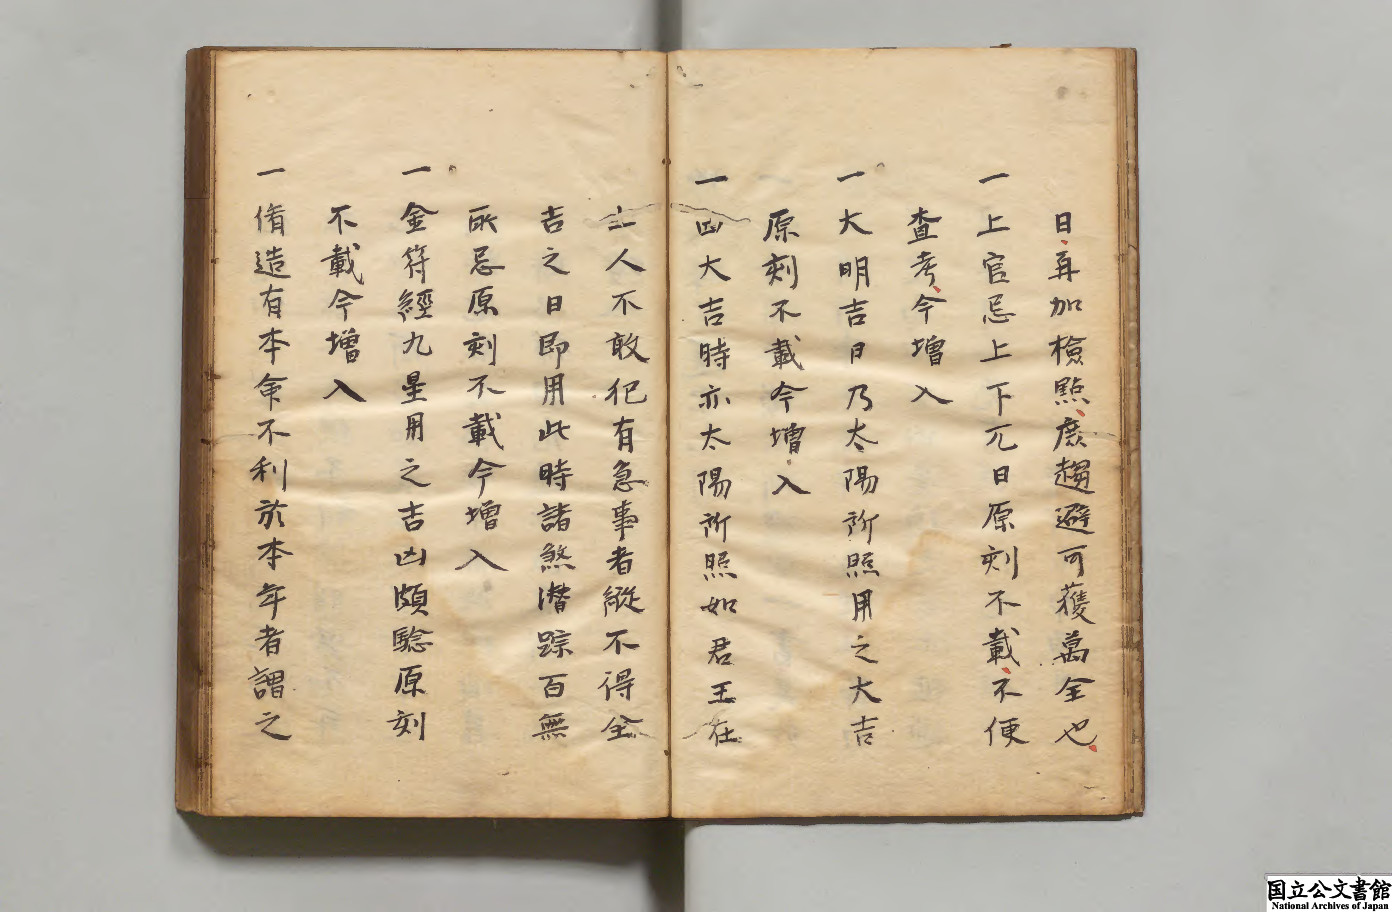 日再加檢點庶趨避可獲萬全也
一上官忌上下兀日原刻不載不便
查考今增入
一大明吉日乃太陽所照用之大吉
原刻不載今增入
一四大吉時亦太陽所照如君王在
上人不敢犯有急事者縱不得全
吉之日即用此時諸煞潛踪百無
所忌原刻不載今增入
一金符經九星用之吉凶頗驗原刻
不載今增入
一脩造有本命不利於本年者謂之
国立公文書館
National Archives of Japan